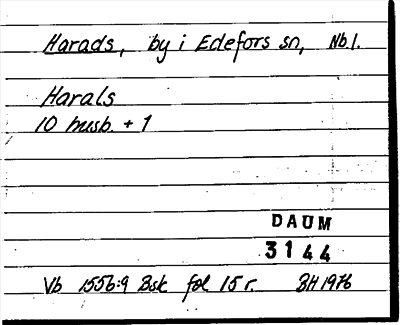 Harads, by i Edefors sn, Nb l.
Harals
10 husb. + 1
DAUM
3144
Vb 1556:9 Bsk fol 15 r. BH 1976